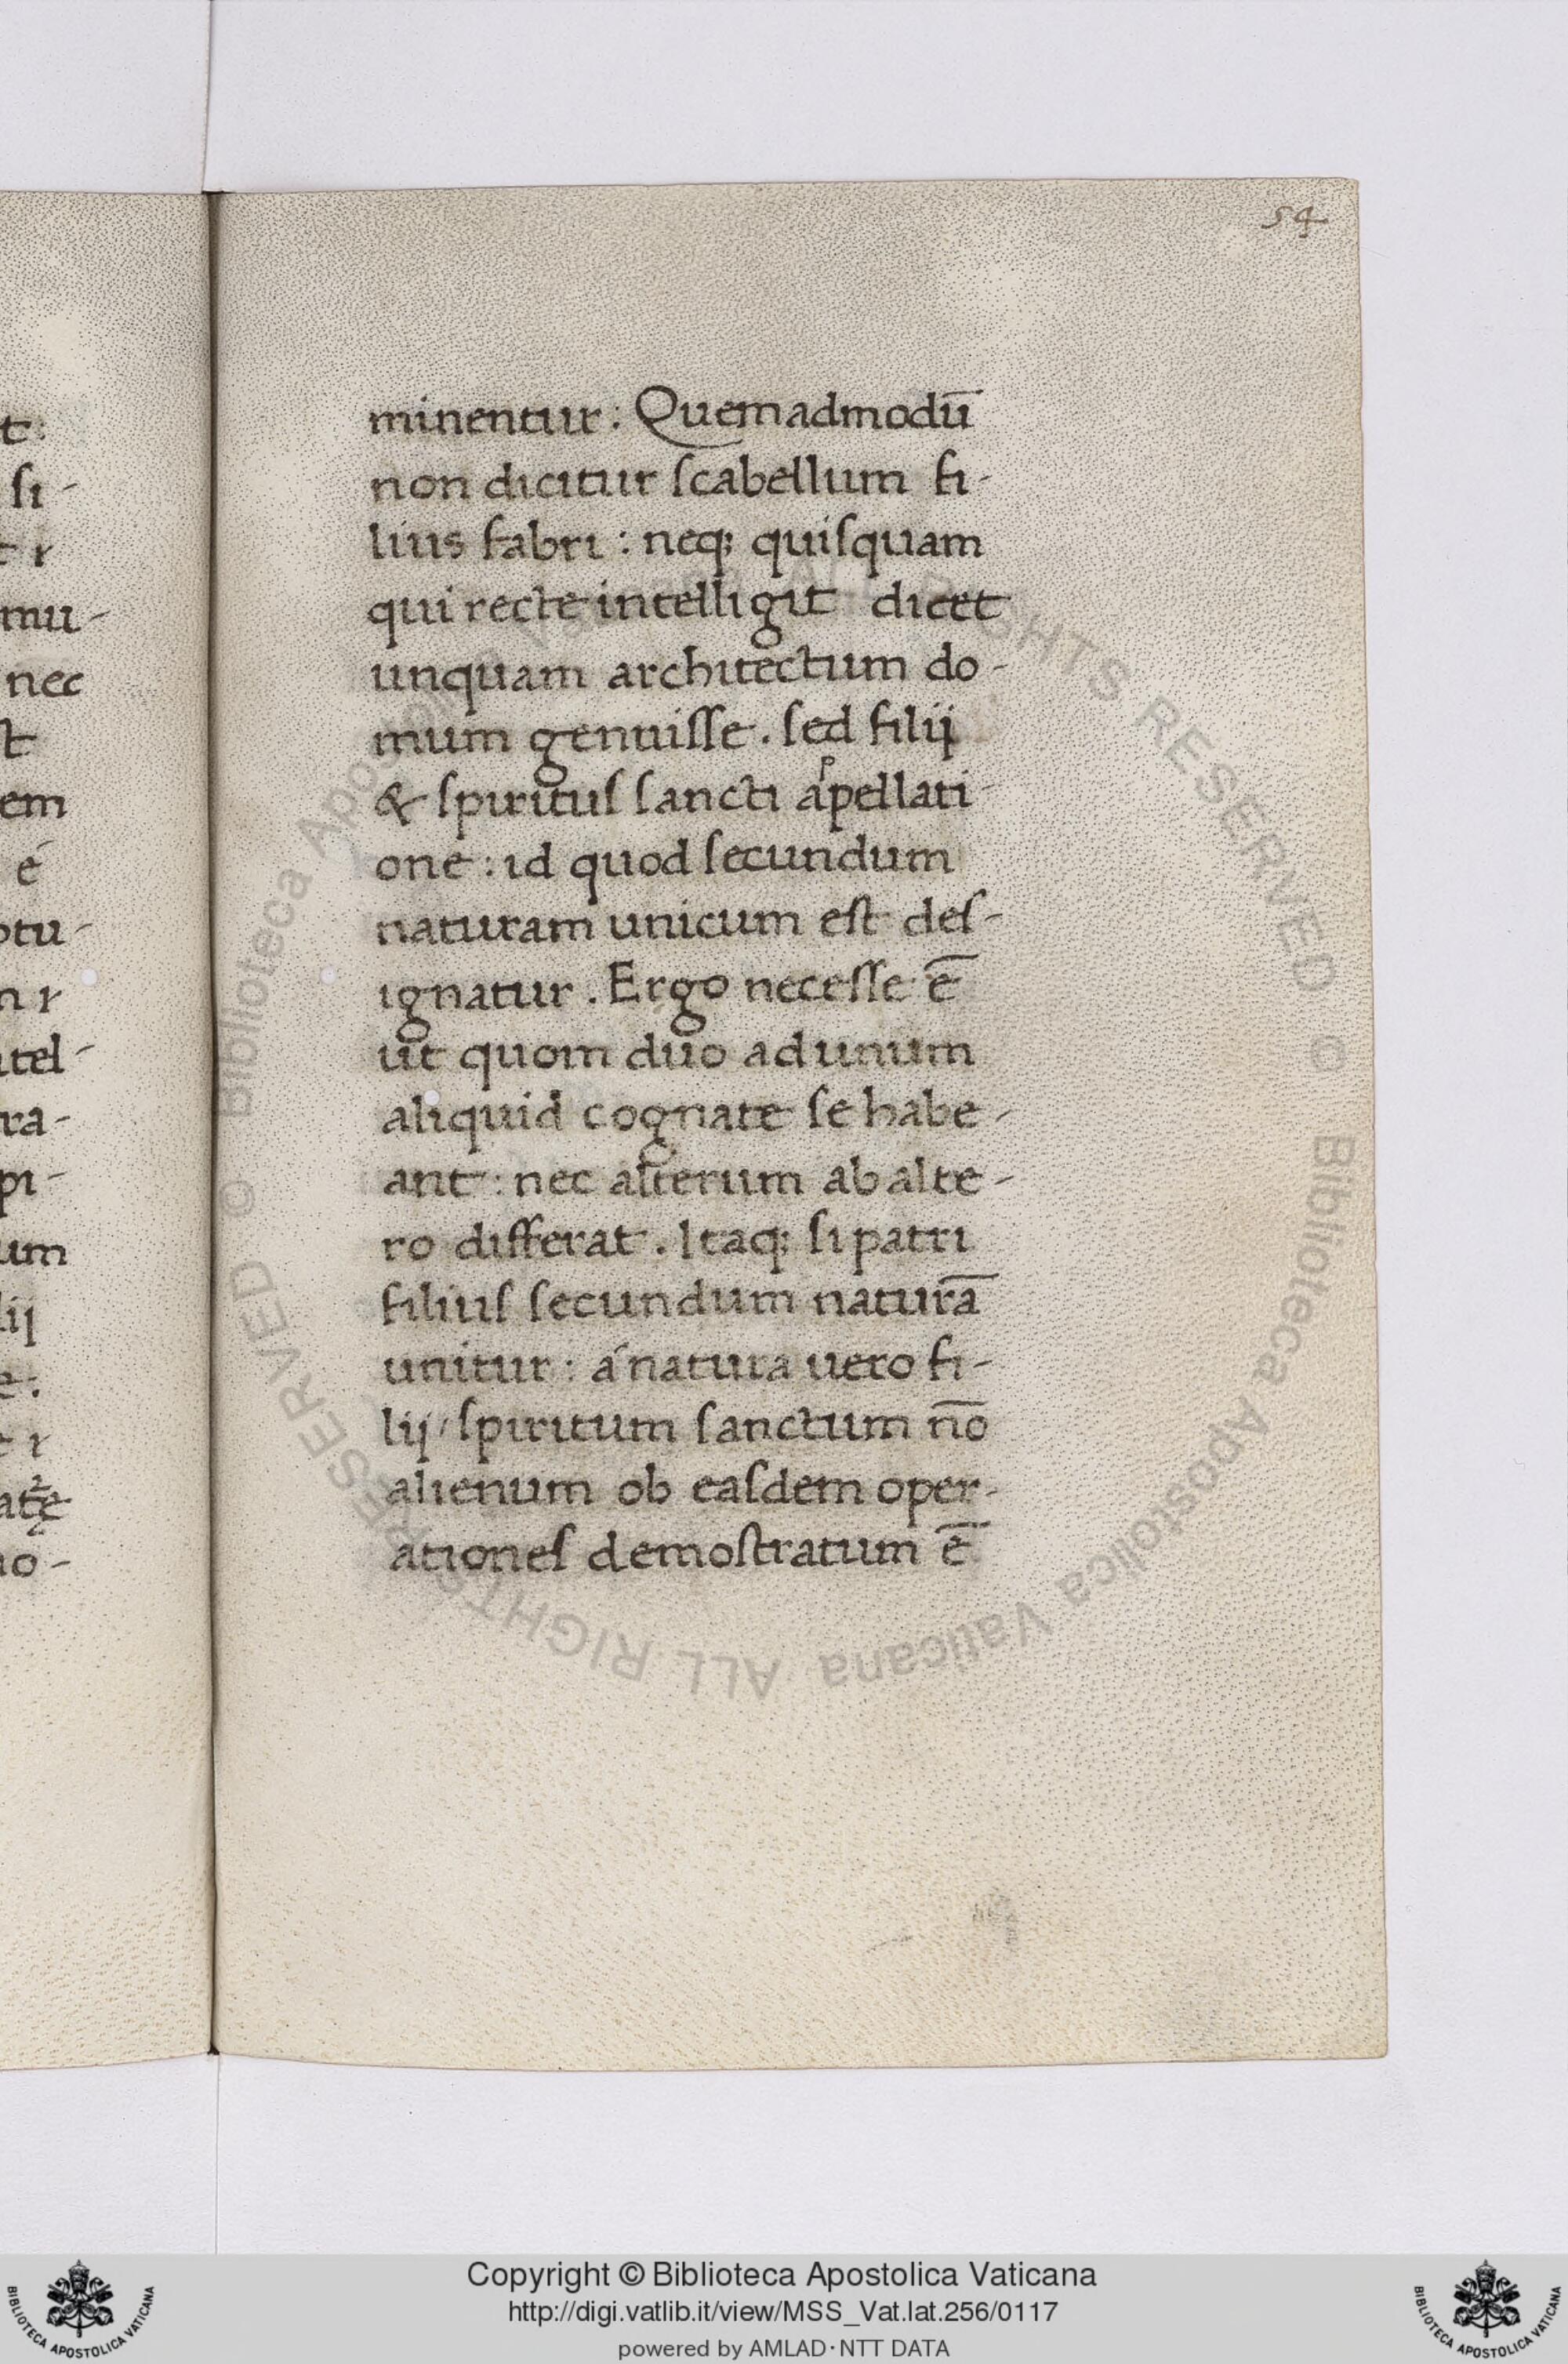 54
minentur : Quemadmodū
non dicitur ſcabellum fi-
lius fabri : neq; quiſquam
qui recte intelligit dicet
unquam architectum do-
mum genuiſſe . ſed filij
& ſpirituſ ſancti apellati-
one : id quod ſecundum
naturam unicum eſt deſ-
ignatur . Ergo neceſſe ē
ut quom duo ad unum
aliquid cognate ſe habe-
ant : nec alterum ab alte-
ro differat . Itaq; ſi patri
filiuſ ſecundum naturā
unitur : á natura uero fi-
lij / ſpiritum ſanctum nō
alienum ob eaſdem oper-
ationeſ demoſtratum ē
t :
ſi -
t r
mu -
nec
ſt
em
é
otu -
n r
tel -
ra -
pi -
um
lij
e :
t r
atę
no -
© Biblioteca Apostolica Vaticana ALL RIGHTS RESERVED © Biblioteca Apostolica Vaticana ALL RIGHTS RESERVED
Copyright © Biblioteca Apostolica Vaticana
http://digi.vatlib.it/view/MSS_Vat.lat.256/0117
powered by AMLAD·NTT DATA
BIBLIOTECA APOSTOLICA VATICANA
BIBLIOTECA APOSTOLICA VATICANA